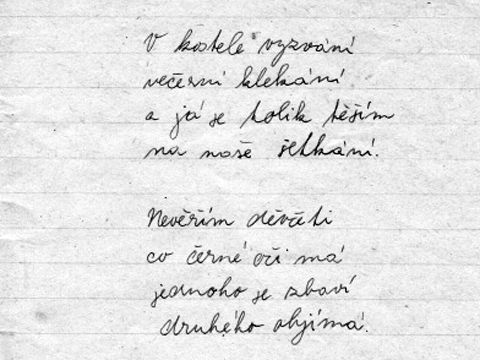 V kostele vyzvání
večerní klekání
a já se tolik těším
na naše šetkání.
Nevěřím děvčeti
co černé oči má
jednoho se zbaví
druhého objímá.